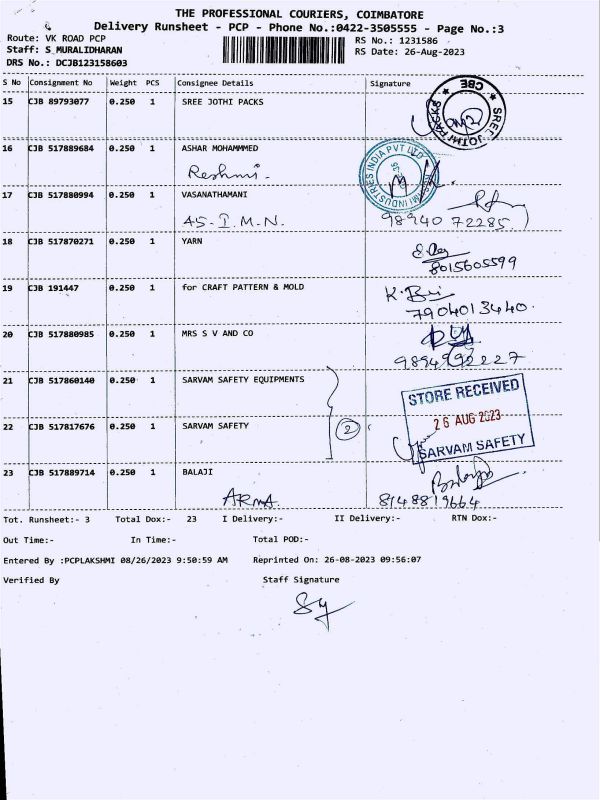 THE PROFESSIONAL COURIERS, COIMBATORE
Delivery Runsheet - PCP - Phone No.:0422-3505555 - Page No.:3
Route: VK ROAD PCP
RS No.: 1231586
Staff: S MURALIDHARAN
RS Date: 26-Aug-2023
DRS No.: DCJB123158603
S No Consignment No Weight PCS Consignee Details Signature
15 CJB 89793077 0.250 1 SREE JOTHI PACKS
SREE JOTHI PACKS CBE
16 CJB 517889684 0.250 1 ASHAR MOHAMMMED
Reshmi.
INDUSTRIES INDIA PVT LTD
17 CJB 517880994 0.250 1 VASANATHAMANI
45. I. M. N.
98940 72285
18 CJB 517870271 0.250 1 YARN
8015605599
19 CJB 191447 0.250 1 for CRAFT PATTERN & MOLD
7904013440.
20 CJB 517880985 0.250 1 MRS S V AND CO
21 CJB 517860140 0.250 1 SARVAM SAFETY EQUIPMENTS
STORE RECEIVED
26 AUG 2023
2
22 CJB 517817676 0.250 1 SARVAM SAFETY
SARVAM SAFETY
23 CJB 517889714 0.250 1 BALAJI
Balaji
8148819664
Tot. Runsheet:- 3 Total Dox:- 23 I Delivery:- II Delivery:- RTN Dox:-
Out Time:- In Time:- Total POD:-
Entered By :PCPLAKSHMI 08/26/2023 9:50:59 AM Reprinted On: 26-08-2023 09:56:07
Verified By Staff Signature